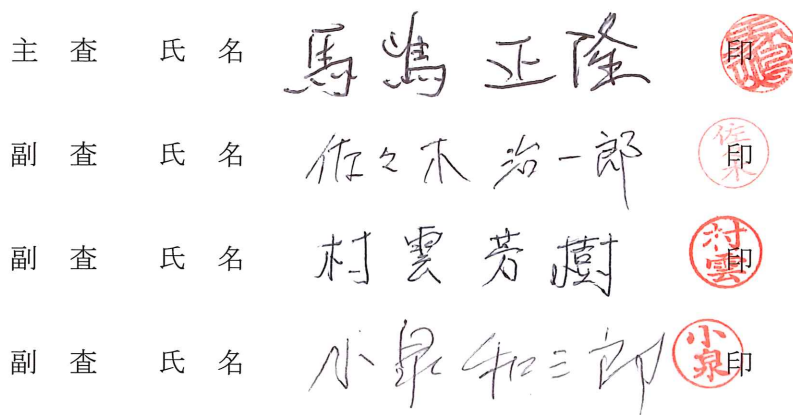 主査 氏名 馬嶌正隆 印
副査 氏名 佐々木治一郎 印 佐々木
副査 氏名 村雲芳樹 印 村雲
副査 氏名 小泉和三郎 印 小泉